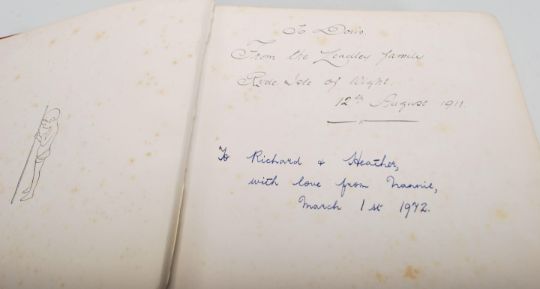 To Doris
From the Longley family
Ryde Isle of Wight.
12th August 1911.
To Richard & Heather,
with love from Nannie,
March 1st 1972.